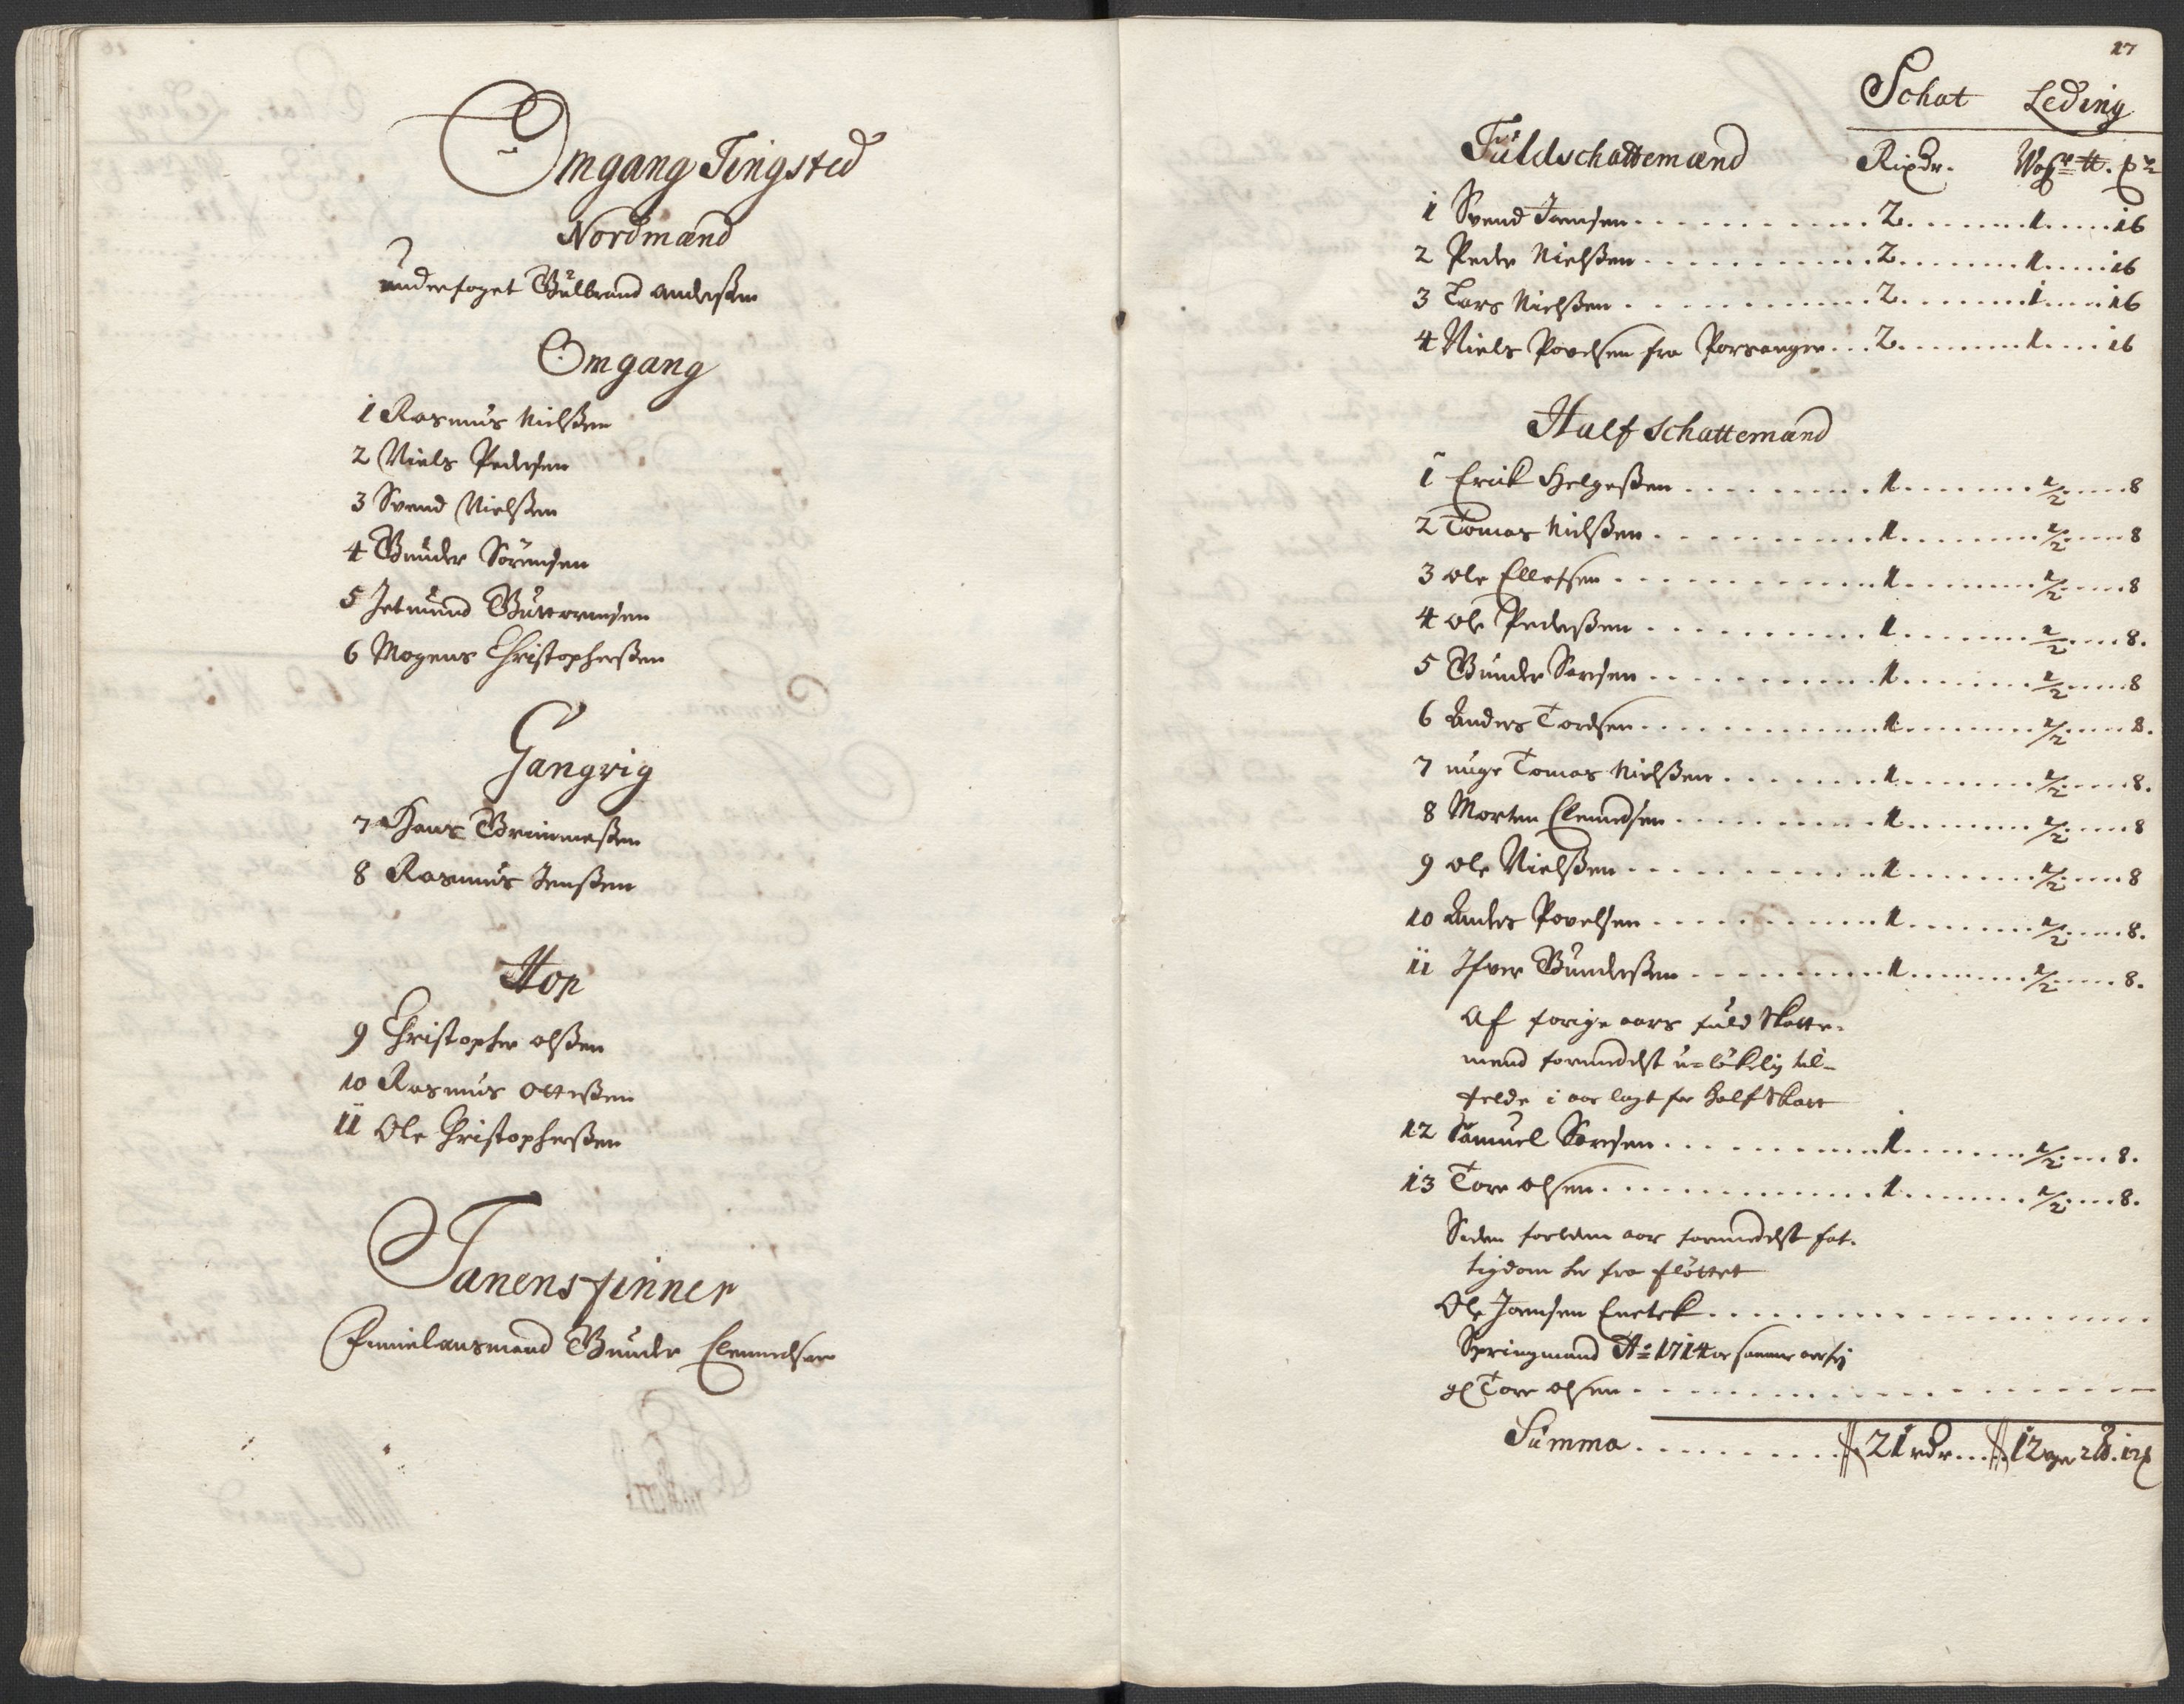 Omgang Tingsted
Nordmænd
underfoget Gulbrand Andersßen
Omgang
1 Rasmus Nielßen
2 Niels Pedersen
3 Svend Nielßen
4 Gunder Sörensen
5 Jetmund Guttormsen
6 Mogens Christophersßen
Gangvig
7 Hans
8 Rasmus Jenßen
Hop
9 Christopher Olßen
10 Rasmus Ottesßen
11 Ole Christophersßen
Tanens finner
Finnelensmand Gunder Clemedsen
17
Schat Leding
Fuldschattemænd Rixdr. Woger ℔.
1 Svend Joensen 2 1 16
2 Peder Nielßen 2 1 16
3 Lars Nielßen 2 1 16
4 Niels Povelsen fra Porsanger 2 1 16
Half schattemænd
1 Erick Helgesßen 1 1/2 8
2 Tomas Nielßen 1 1/2 8
3 Ole Ellefsen 1 1/2 8
4 Ole Pedersßen 1 1/2 8.
5 Gunder Sarsen 1 1/2 8
6 Anders Tordsen 1 1/2 8.
7 unge Tomas Nielßen 1 1/2 8.
8 Morten Clemedsen 1 1/2 8
9 Ole Nielßen 1 1/2 8
10 Anders Povelsen 1 1/2 8.
11 Ifver Gundersßen 1 1/2 8.
Af forige aars fuld Skatte-
mend formedelst u-lökelig til-
felde i aar lagt for half Skatt
12 Samuel Sarsen 1 1/2 8.
13 Tore Olsen 1 1/2 8.
Siden forleden aar formedelst fat-
tigdom her fra flöttet
Ole Joensen
Springmand Ao 1714
gl Tore Olsen
Summa 21 rdr 12